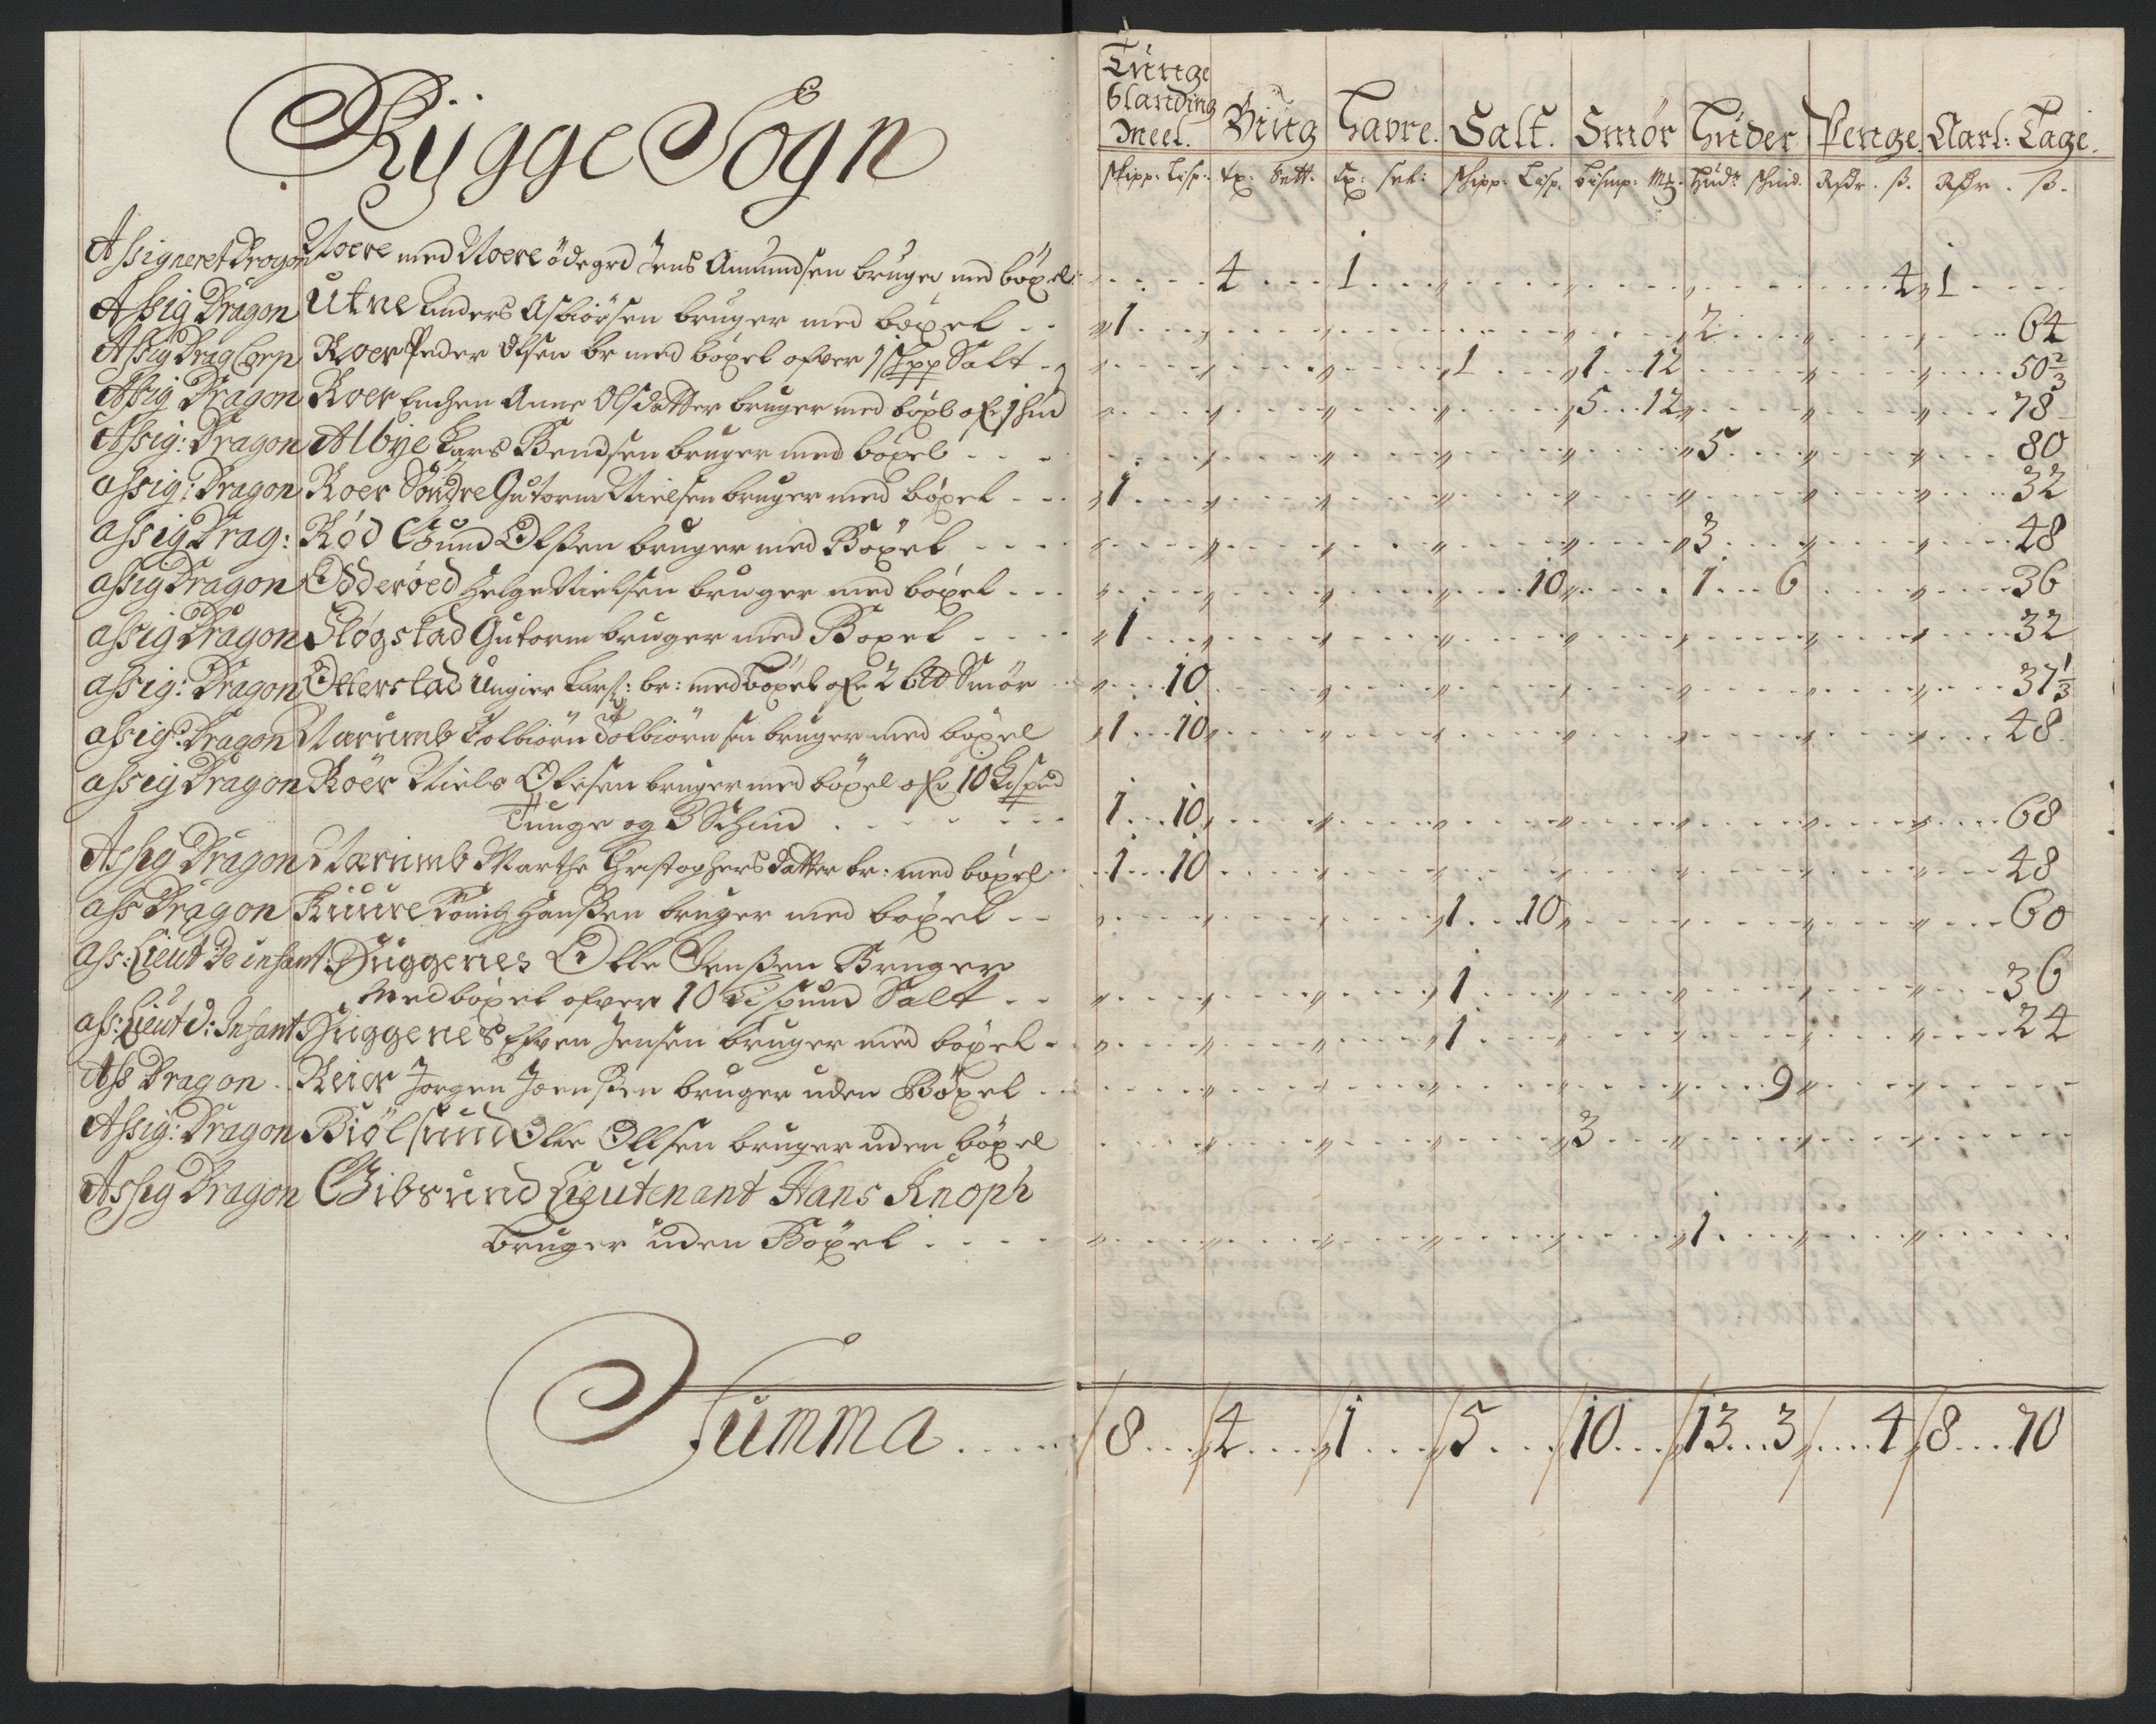 Rÿgge Sogn
Tunge
blanding
Meel. Biug Havre. Salt. Smör Huder Penge. Aarl: Tage.
skipp: Lisp: tx: sett: tx: set: Skipp: Lisp. bismp: Mk: Hud: schind. Rdr. ß. Rdr. ß.
Assigneret Dragon Noere med Noere ödegrd Jens Amundsen bruger med böxel 4 1 4 1
Assig Dragon Utne Anders Asbiörsen bruger med böxel 1 2 64
Assig Drag Corp Roer Peder Olsen br med böxel ofver 1 Skpp Salt 1 1 12 50 2/3
Assig Dragon Roer Enchen Anne Olsdatter bruger med böxl ofr 1 hud 5 12 78
Assig: Dragon Albye Lars Bendsen bruger med böxel 5 80
assig: Dragon Roer Söndre Gutorm Nielsen bruger med böxel 1 32
assig Drag: Röd Olßen bruger med Böxel 3 48
assig Dragon Odderöed Helge Nielsen bruger med böxel 10 1 6 36
assig Dragon Slögstad Gutorm bruger med Boxel 1 32
assig: Dragon Otterstad Ungier Lars: br: med böxel ofr 2 bltt Smör 10 37 1/3
assig: Dragon Nærumb Tolbiörn Tolbiörnsen bruger med böxel 1 10 48
assig Dragon Röer Niels Olesen bruger med böxel ofr 10 Lispund
Tunge og 3 Schind 1 10 68
Assig Dragon Nærumb Marthe Christophersdatter br: med böxel 1 10 48
ass Dragon Kuure Hanßen bruger med böxel 1 10 60
ass: Lieut De infant: Huggenes Olle Jenßen Bruger
med böxel ofver 10 Lispund Salt 1 36
ass: Lieut d: Infant Huggenes Efven Jensen bruger med böxel 1 24
Ass Dragon Reier Jorgen Joenßen bruger uden Böxel 9
Assig: Dragon Biölsund Olle Ollsen bruger uden böxel 3
Assig Dragon Gibsund Lieutenant Hans Knoph
bruger uden Böxel 1
Summa 8 4 1 5 10 13 3 4 8 70